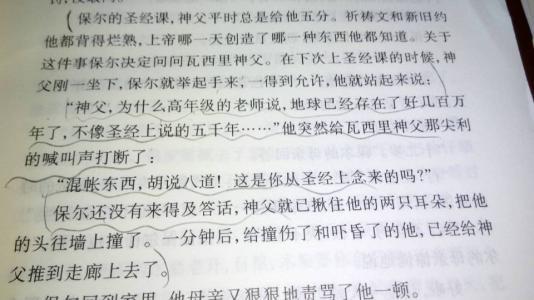 保尔的圣经课，神父平时总是给他五分。祈祷文和新旧约
他都背得烂熟，上帝哪一天创造了哪一种东西他都知道。关于
这件事保尔决定问问瓦西里神父。在下次上圣经课的时候，神
父刚一坐下，保尔就举起手来，一得到允许，他就站起来说：
“神父，为什么高年级的老师说，地球已经存在了好几百万
年了，不像圣经上说的五千年……”他突然给瓦西里神父那尖利
的喊叫声打断了：
“混帐东西，胡说八道！这是你从圣经上念来的吗？”
保尔还没有来得及答话，神父就已揪住他的两只耳朵，把他
的头往墙上撞了。一分钟后，给撞伤了和吓昏了的他，已经给神
父推到走廊上去了。
保尔回到家里，他母亲又狠狠地责骂了他一顿。